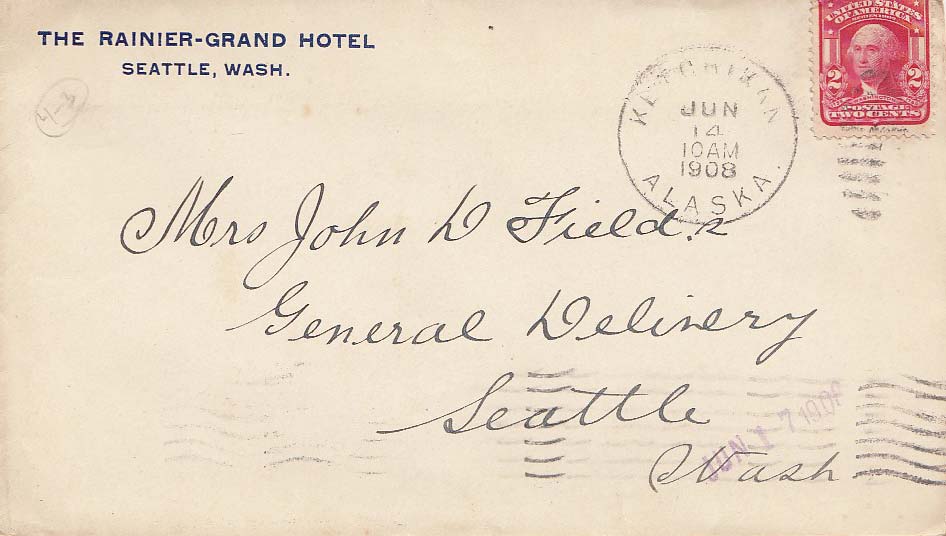 THE RAINIER-GRAND HOTEL
SEATTLE, WASH.
KETCHIKAN
JUN
14
10AM
1908
ALASKA.
UNITED STATES
OF AMERICA
2 2
WASHINGTON
POSTAGE
TWO CENTS
Mrs John D Fields
General Delivery
Seattle
Wash
JUN 17 1908